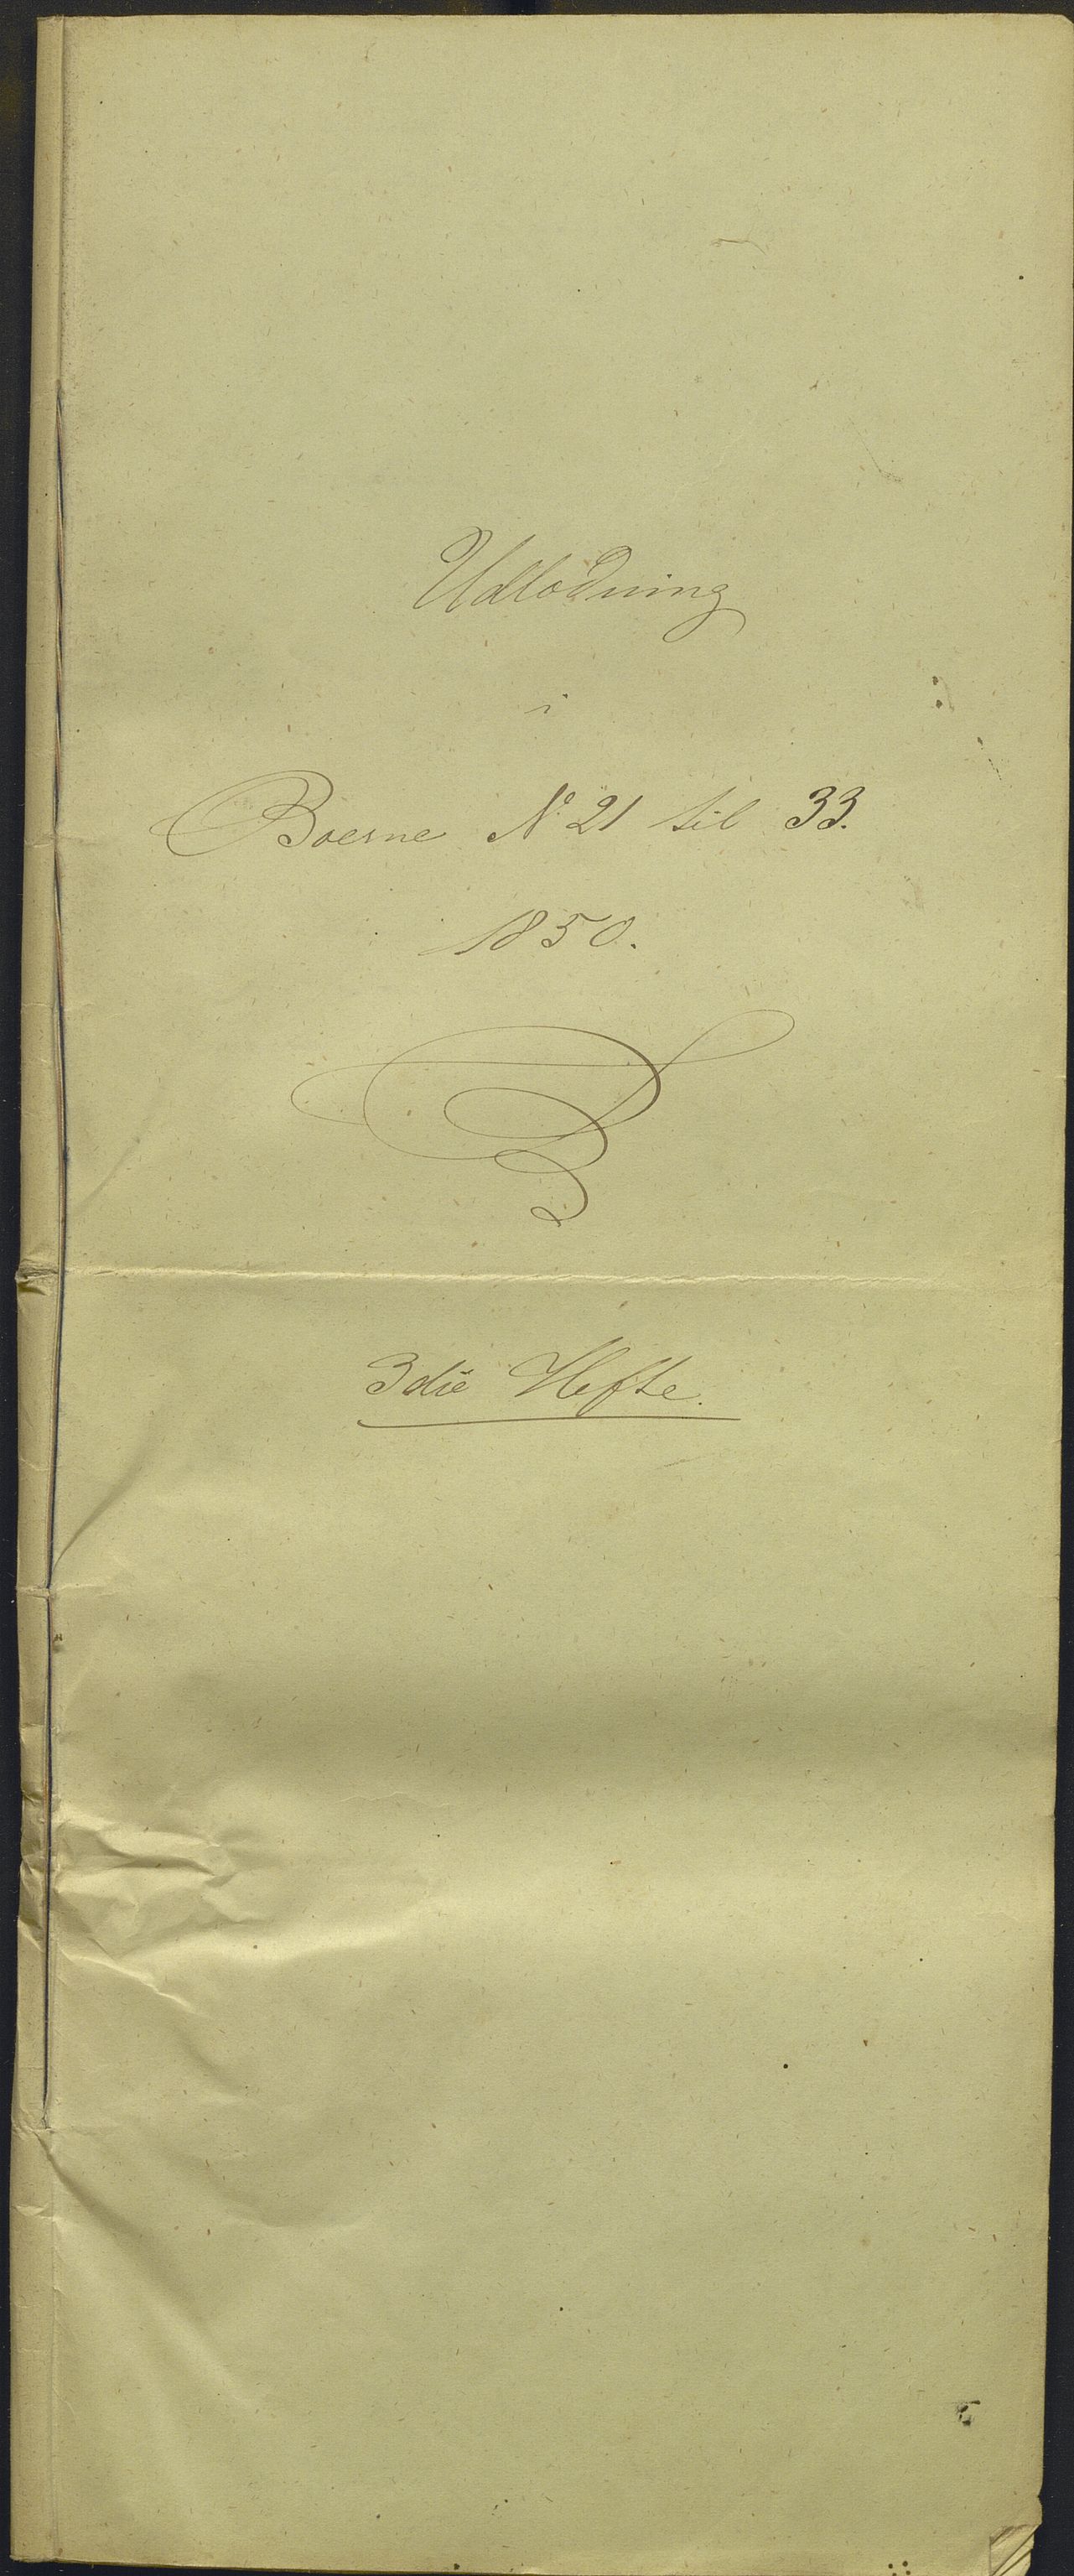 Udlodning
i
Boerne No. 21 til 33.
1850.
3die Hefte.